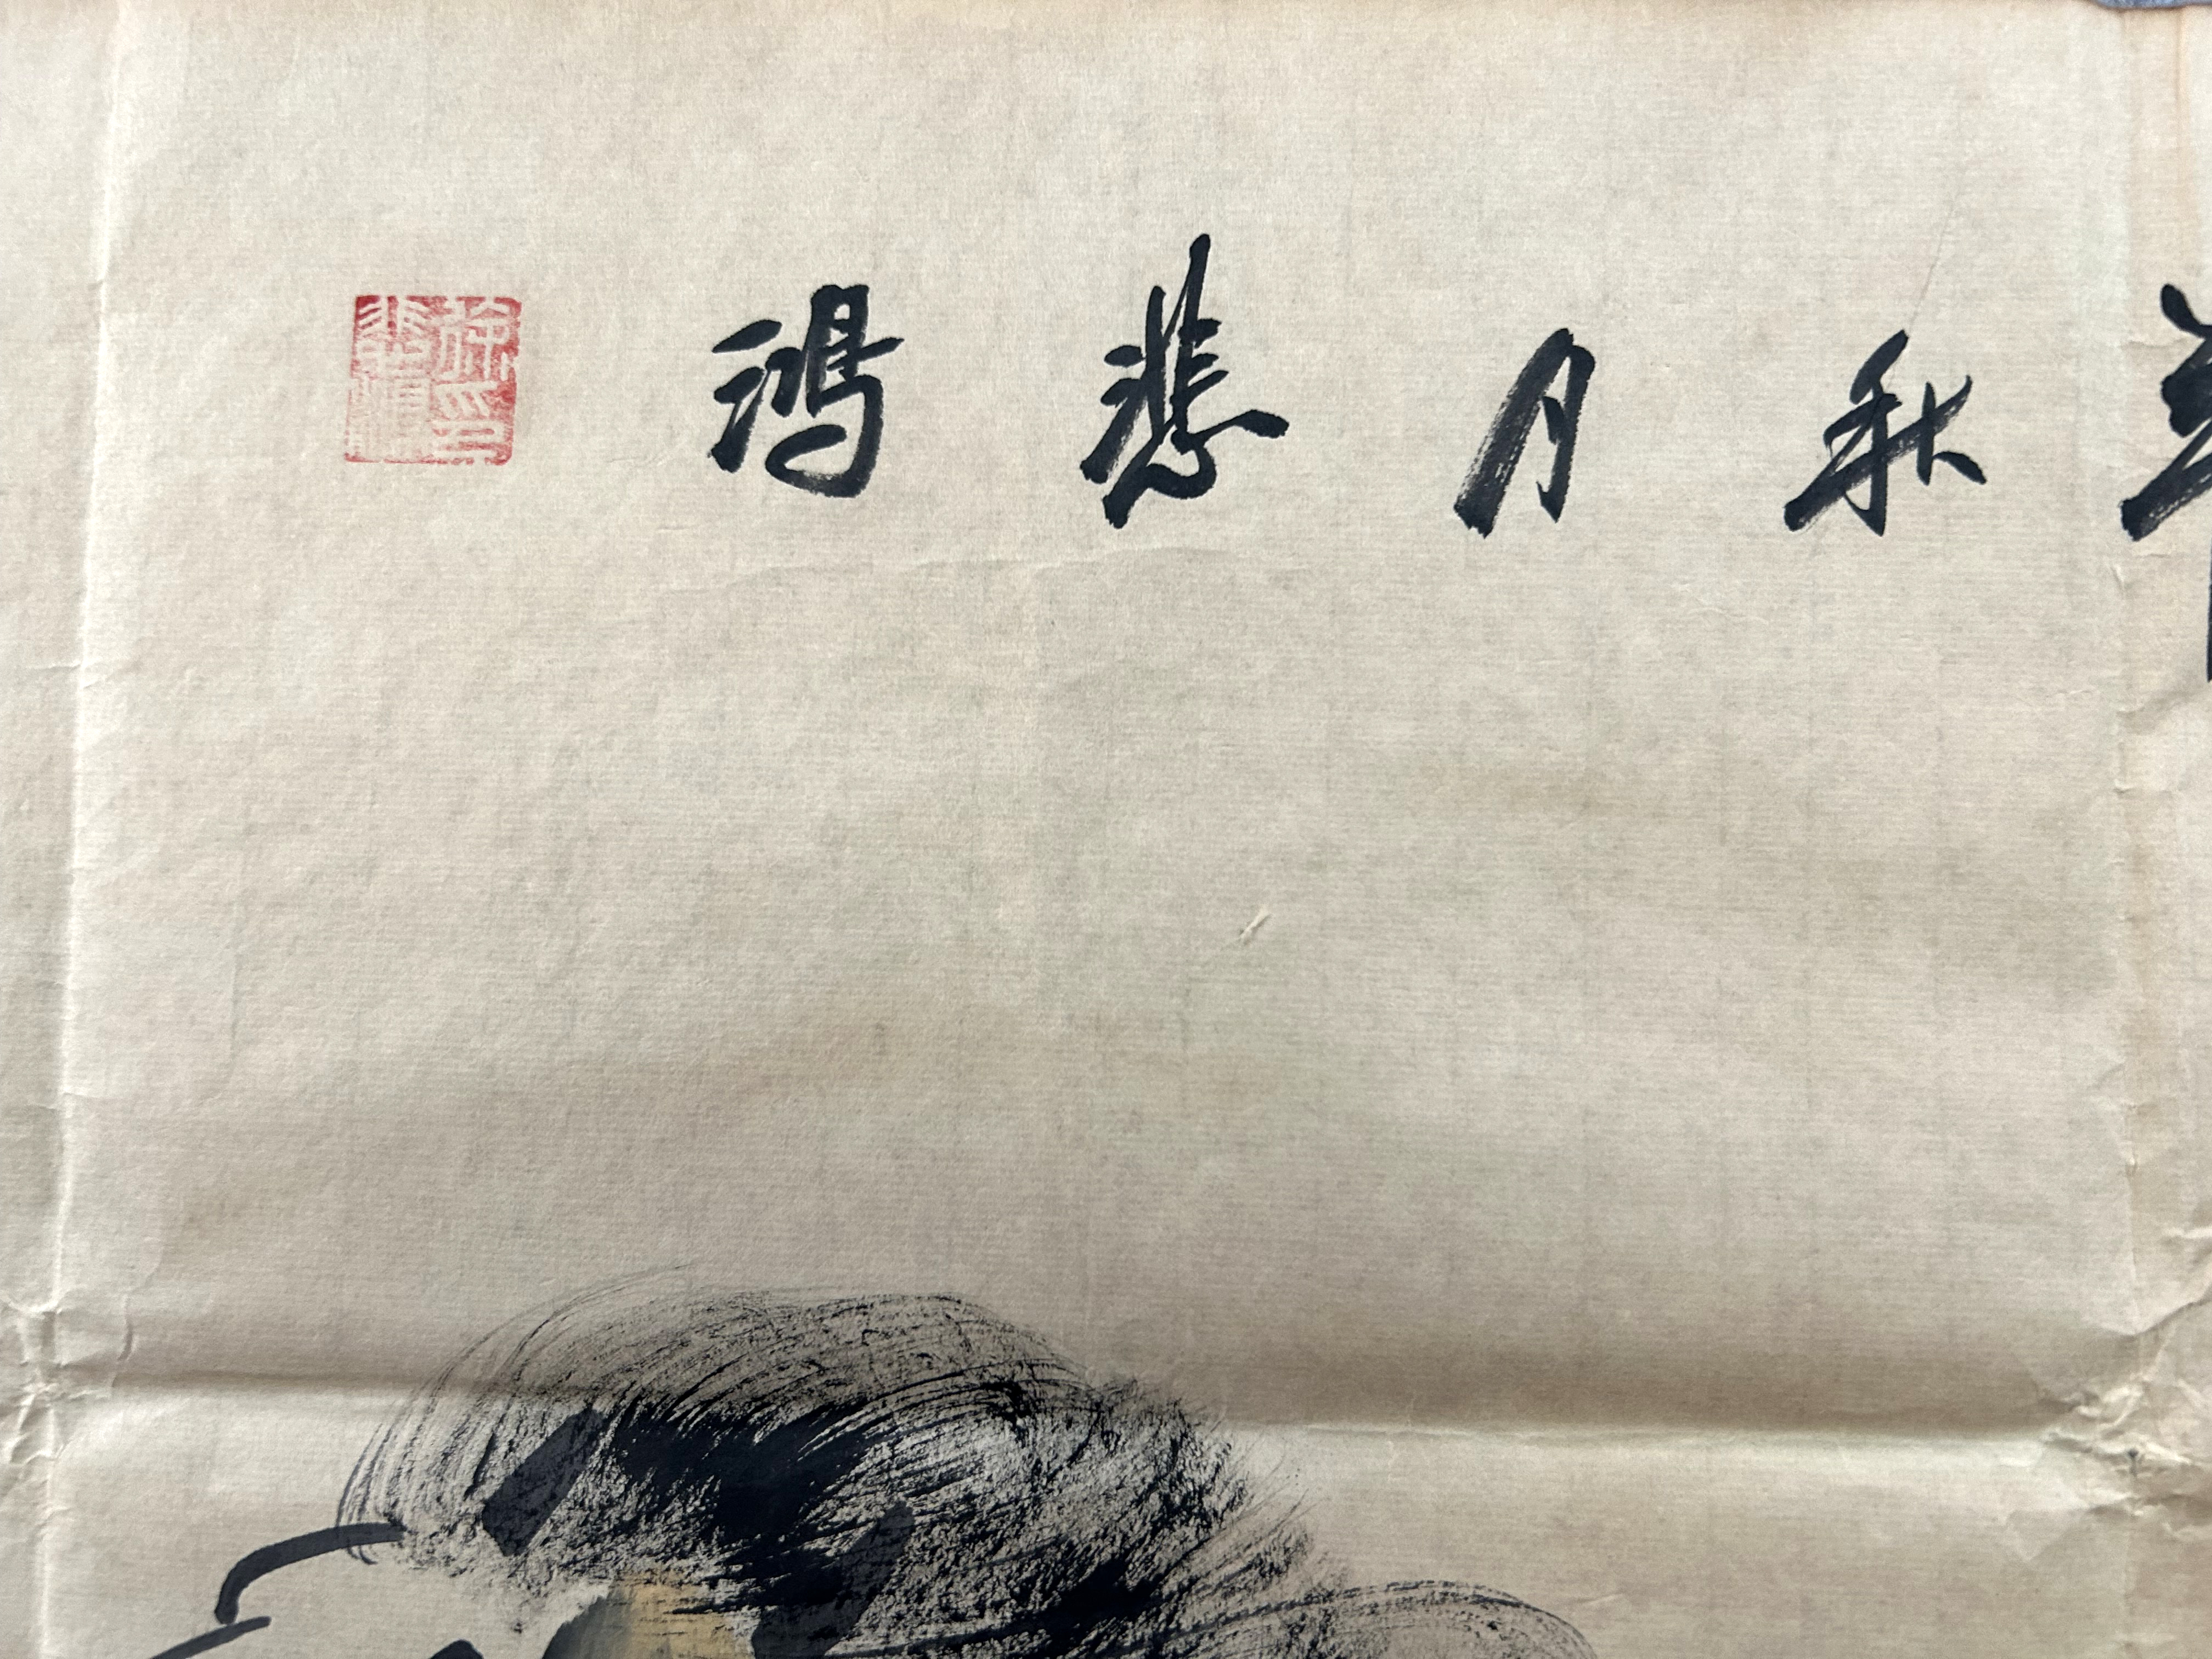 秋月悲鴻
徐印悲鴻